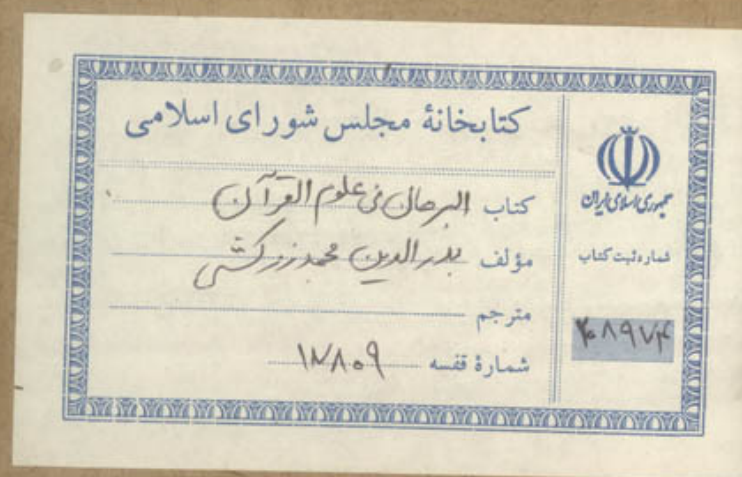 کتابخانهٔ مجلس شورای اسلامی
کتاب البرهان فی علوم القرآن
مؤلف بدرالدین محمد زرکشی
مترجم
شمارهٔ قفسه ۱۷۸۰۹
جمهوری اسلامی ایران
شماره ثبت کتاب
۴۰۸۹۷۴